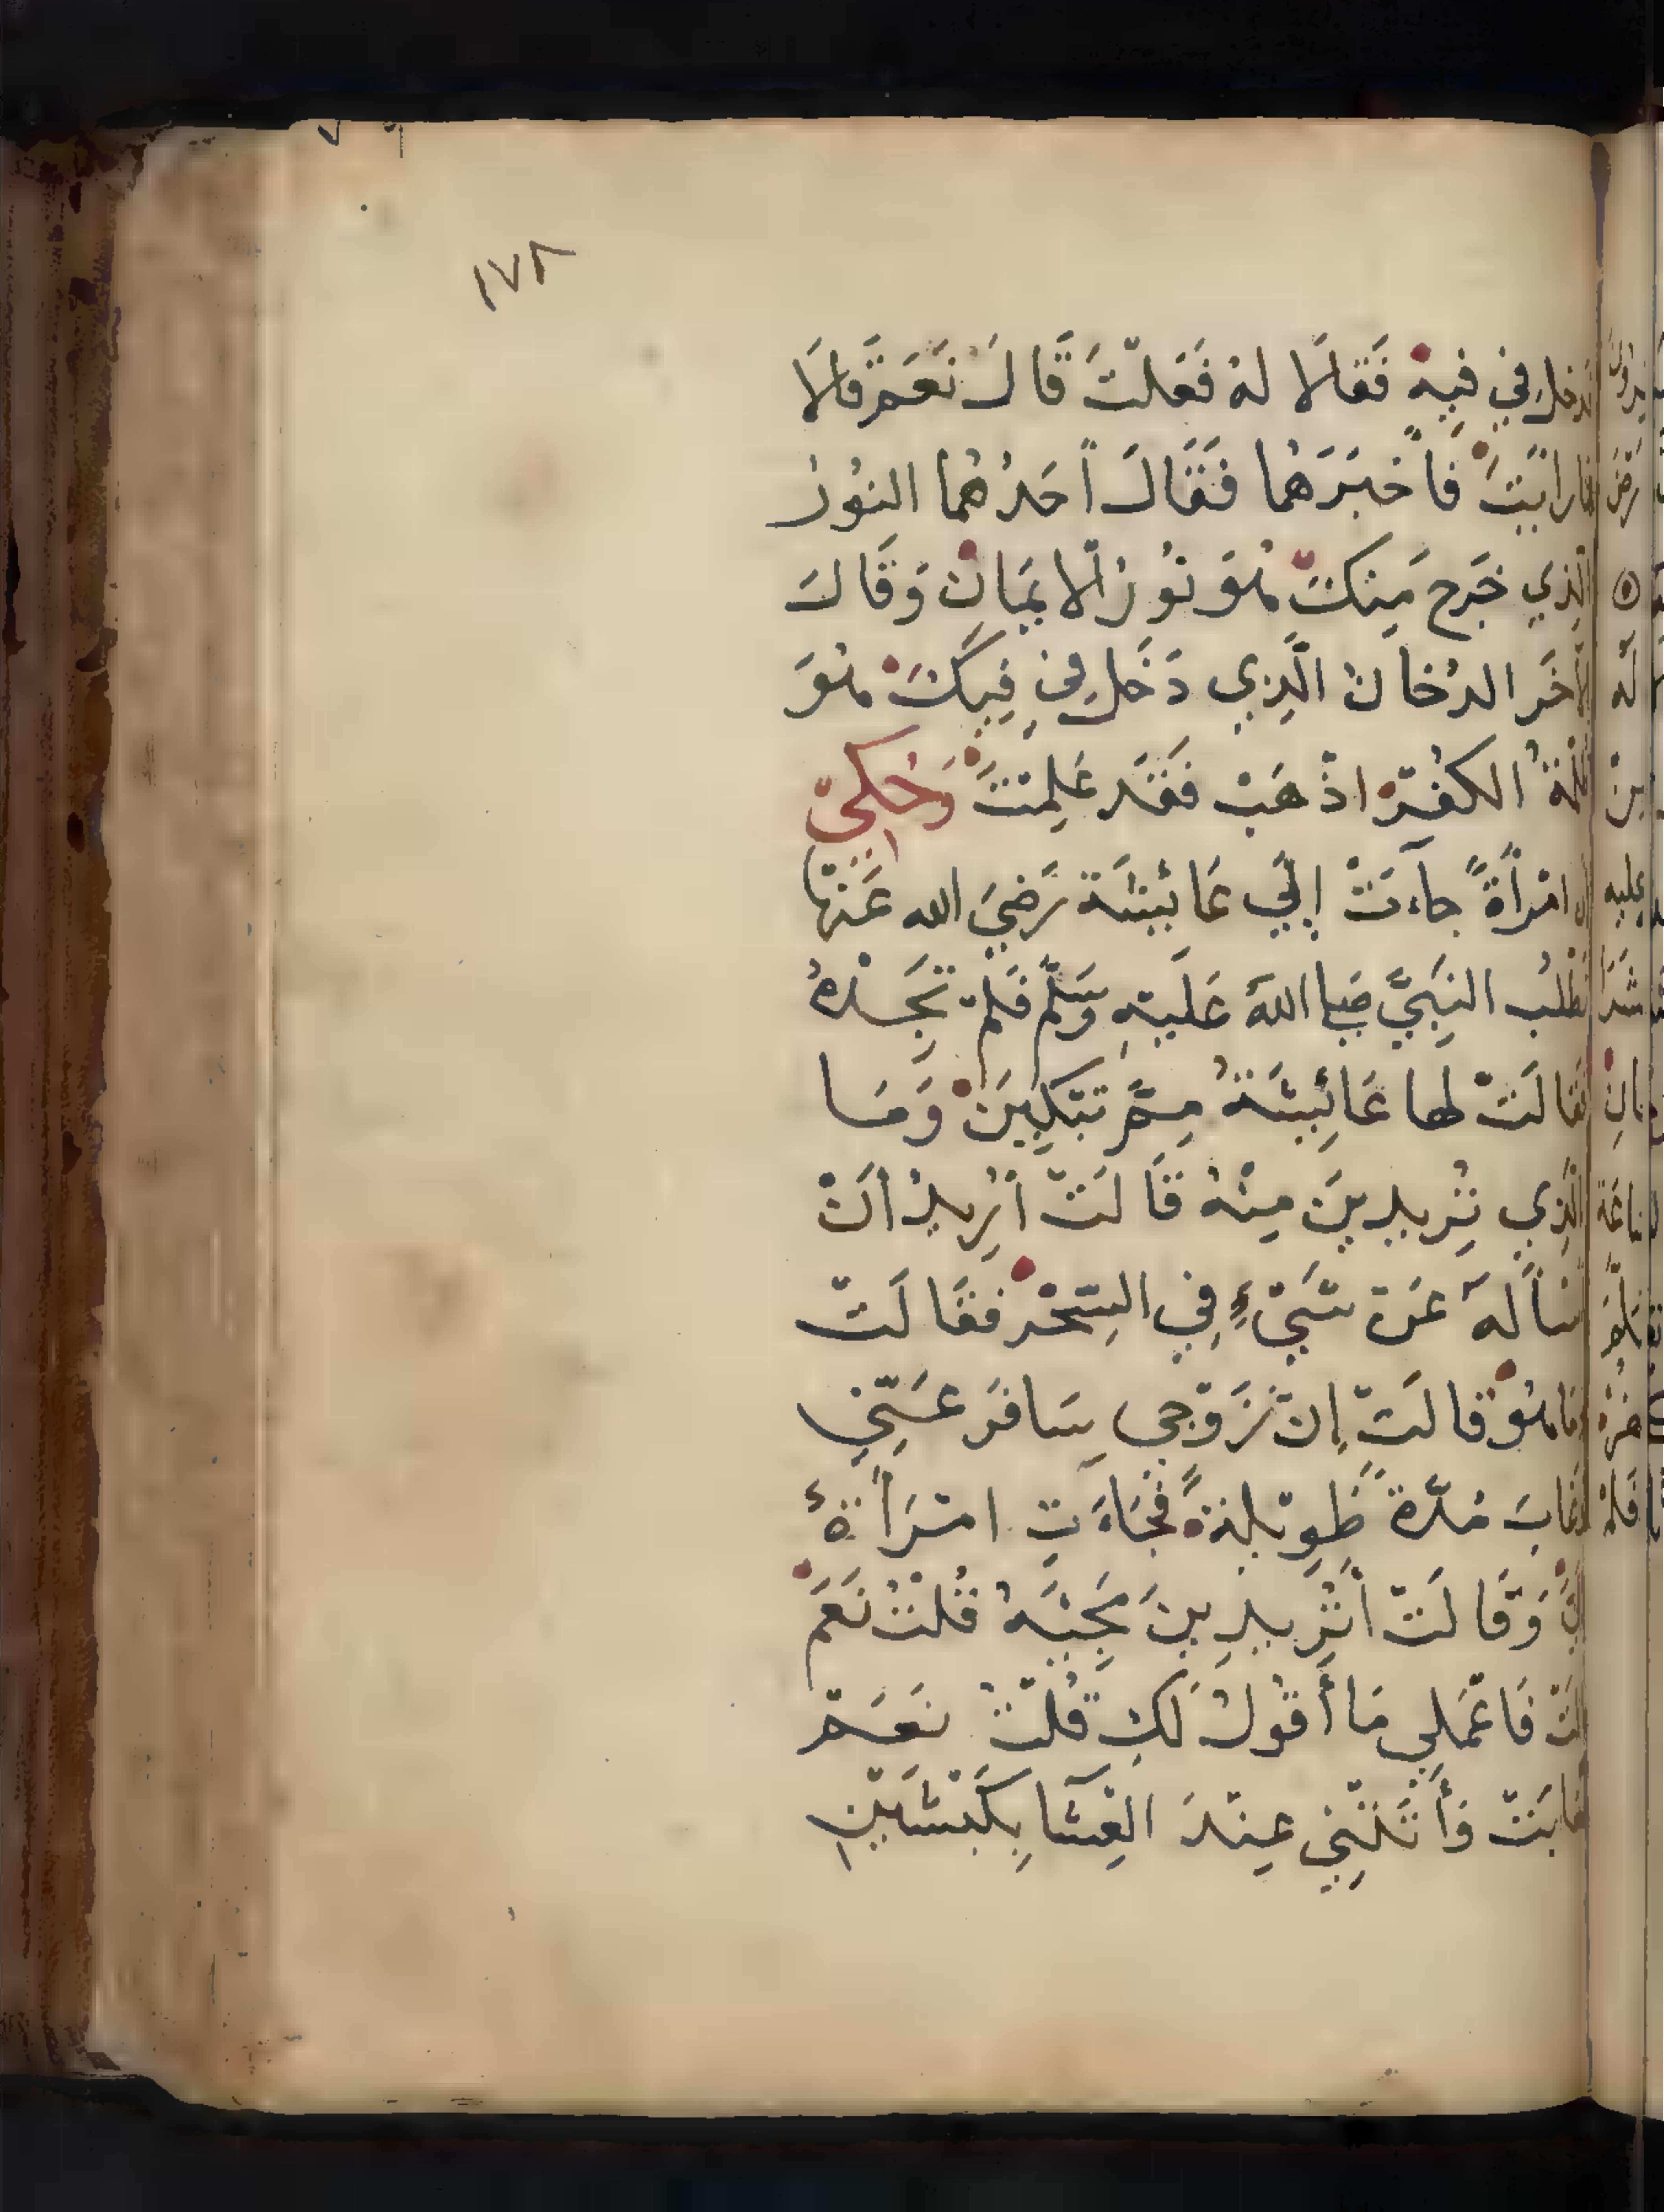 ١٧٨
فدخل في فيه فَقالا له فَعَلْتَ قَالَ نَعَم قَالَا
فما رايتَ فأخبَرَهُما فَقَالَ أحَدُهُما النُورُ
الَّذِي خَرج مِنكَ هُوَ نُورُ الايمَانِ وَقَالَ
الآخَر الدُخانُ الَّذِي دَخَل في فِيكَ هُوَ
ظلمةُ الكُفْرِ اذْهَبْ فَقَد عَلِمْتَ وَحُكِيَ
ان امْرأةً جاءَتْ إلَي عَائِشَة رَضِيَ الله عَنْهَا
تَطْلُب النَبِيَّ صَلى اللهُ عَلَيْهِ وَسَلَّم فَلمْ تَجِدْهُ
فقالَتْ لها عَائِشَةُ مِمَّ تَبْكِينَ وَمَا
الَّذِي تُرِيدينَ مِنْهُ قَالَتْ أُرِيدُ أنْ
اسْأَلَهُ عَنْ شَيْءٍ فِي السِّحْر فَقَالَتْ
وَمَا هُوَ قالَتْ إنّ زَوْجِي سَافَر عَنِّي
وَغَابَ مُدّةً طَوِيْلةً فَجَاءَتِ امْرَأةٌ
إليَّ وَقَالَتْ أَتُرِيدِينَ مَجِيَهُ قُلْتُ نَعَمْ
قالَتْ فَاعْمَلِي مَا أقُولُ لَكِ قُلْتُ نَعَمْ
فغابَتْ وَأتَتْنِي عِنْدَ العِشَا بِكَبْشَيْنِ